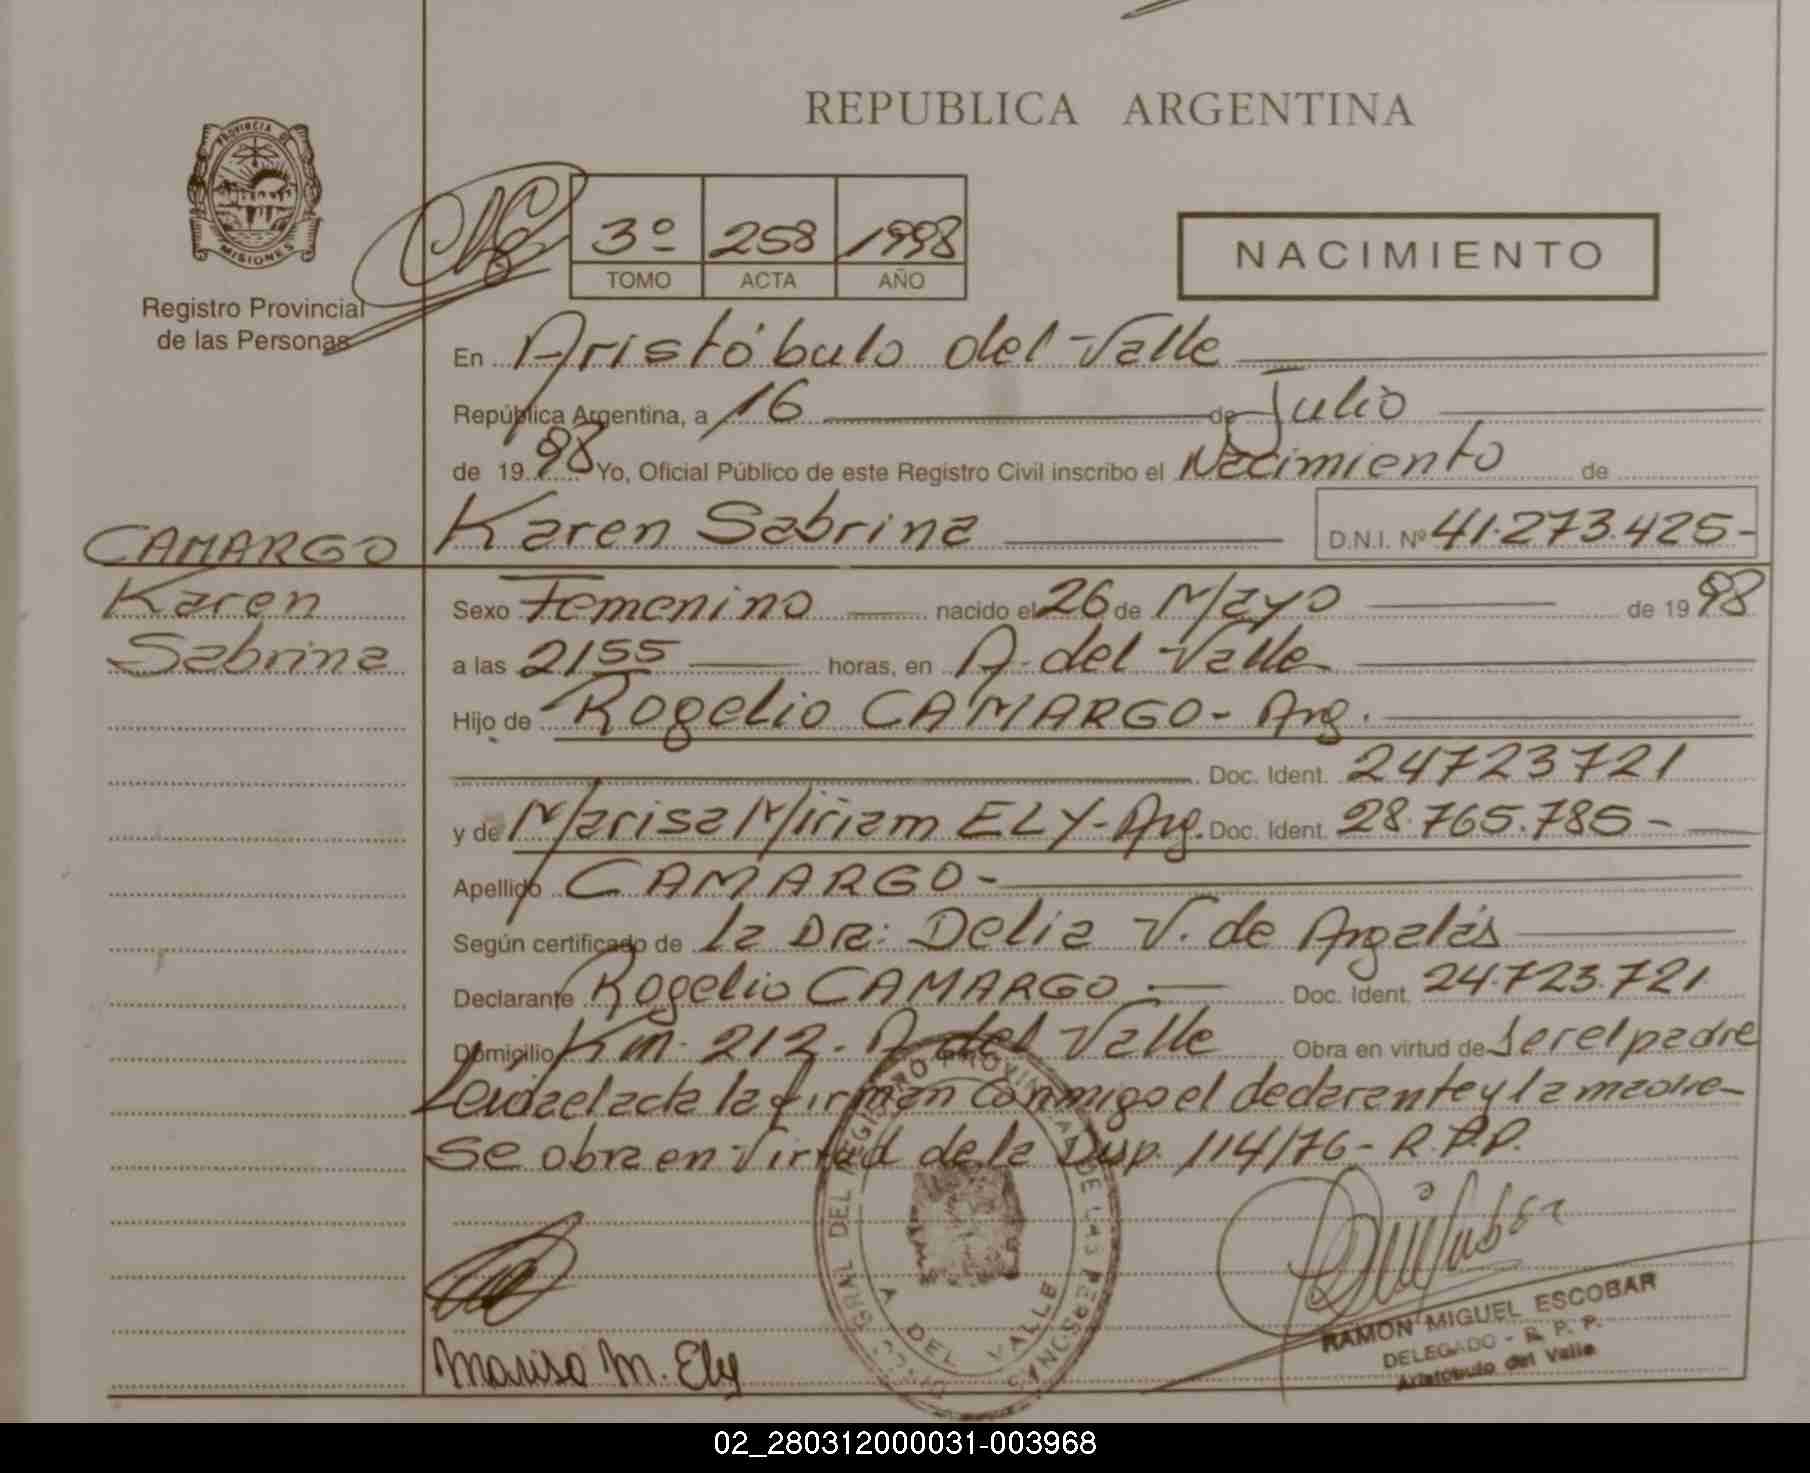 REPUBLICA ARGENTINA
PROVINCIA DE
MISIONES
Registro Provincial
de las Personas
3º 258 1998
TOMO ACTA AÑO
NACIMIENTO
En Aristóbulo del Valle
República Argentina, a 16 de Julio
de 1998 Yo, Oficial Público de este Registro Civil inscribo el Nacimiento de
Karen Sabrina D.N.I. Nº 41.273.425-
CAMARGO
Karen
Sabrina
Sexo Femenino nacido el 26 de Mayo de 1998
a las 2155 horas, en A. del Valle
Hijo de Rogelio CAMARGO- Arg.
Doc. Ident. 24723721
y de Marisa Miriam ELY- Arg. Doc. Ident. 28.765.785-
Apellido CAMARGO-
Según certificado de la Dra: Delia V. de Argalás
Declarante Rogelio CAMARGO Doc. Ident. 24.723.721
Domicilio Km. 212. A del Valle Obra en virtud de ser el padre
Leida el acta la firman conmigo el declarante y la madre-
Se obra en virtud de la Disp. 114/76- R.P.P.
GRAL DEL REGISTRO PROVINCIAL DE LAS PERSONAS
A DEL VALLE
Marisa M. Ely
RAMON MIGUEL ESCOBAR
DELEGADO - R. P. P.
Aristóbulo del Valle
02_280312000031-003968